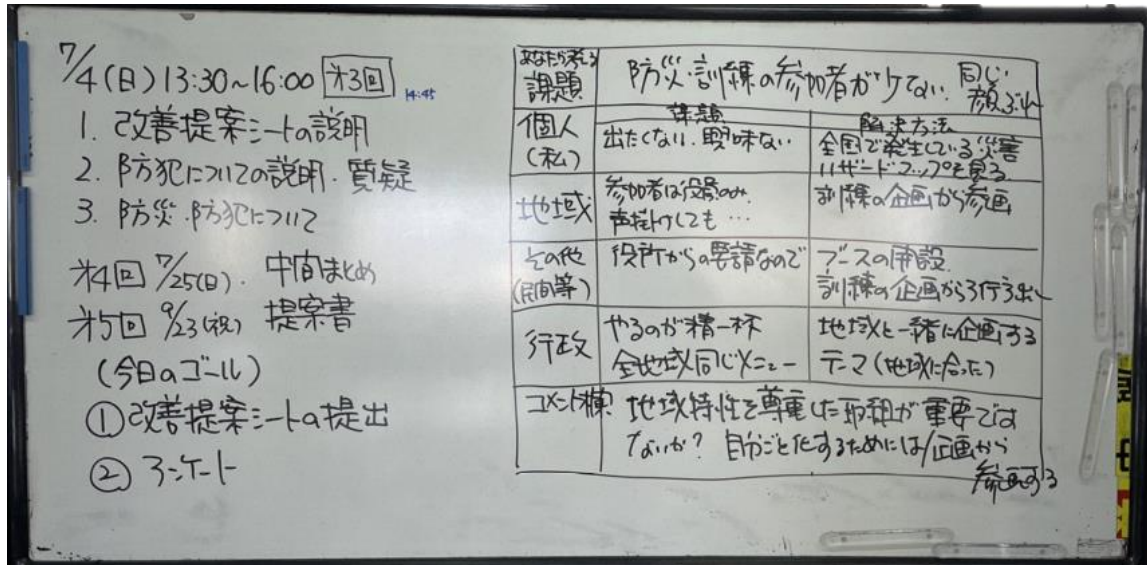 7/4(日)13:30~16:00 第3回
14:45
1. 改善提案シートの説明
2. 防犯についての説明・質疑
3. 防災・防犯について
第4回 7/25(日)・中間まとめ
第5回 9/23(祝) 提案書
(今日のゴール)
①改善提案シートの提出
② アンケート
あなたが考える
課題
防災・訓練の参加者が少ない. 同じ
顔ぶれ
課題
解決方法
個人
(私)
出たくない.興味ない
全国で発生している災害
ハザードマップを見る
地域
参加者は役員のみ.
声掛けしても…
訓練の企画から参画
その他
(民間等)
役所からの要請なので
ブースの開設.
訓練の企画から引行う出し
行政
やるのが精一杯
全地域同じメニュー
地域と一緒に企画する
テーマ(地域に合った)
コメント欄
地域特性を尊重した取組が重要では
ないか? 自分ごと化するためには/企画から
参画する